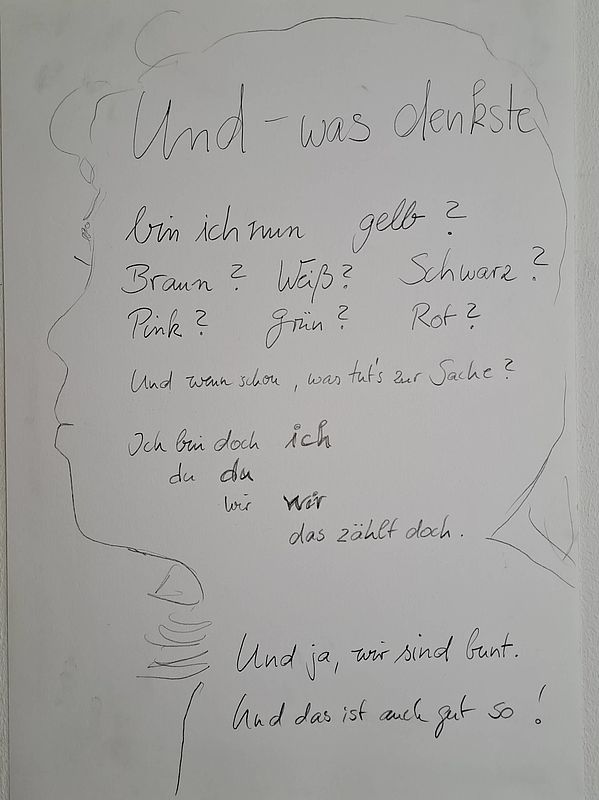 Und – was denkste
bin ich nun gelb ?
Braun ? Weiß ? Schwarz ?
Pink ? Grün ? Rot ?
Und wenn schon, was tut's zur Sache ?
Ich bin doch ich
du du
wir wir
das zählt doch.
Und ja, wir sind bunt.
Und das ist auch gut so !